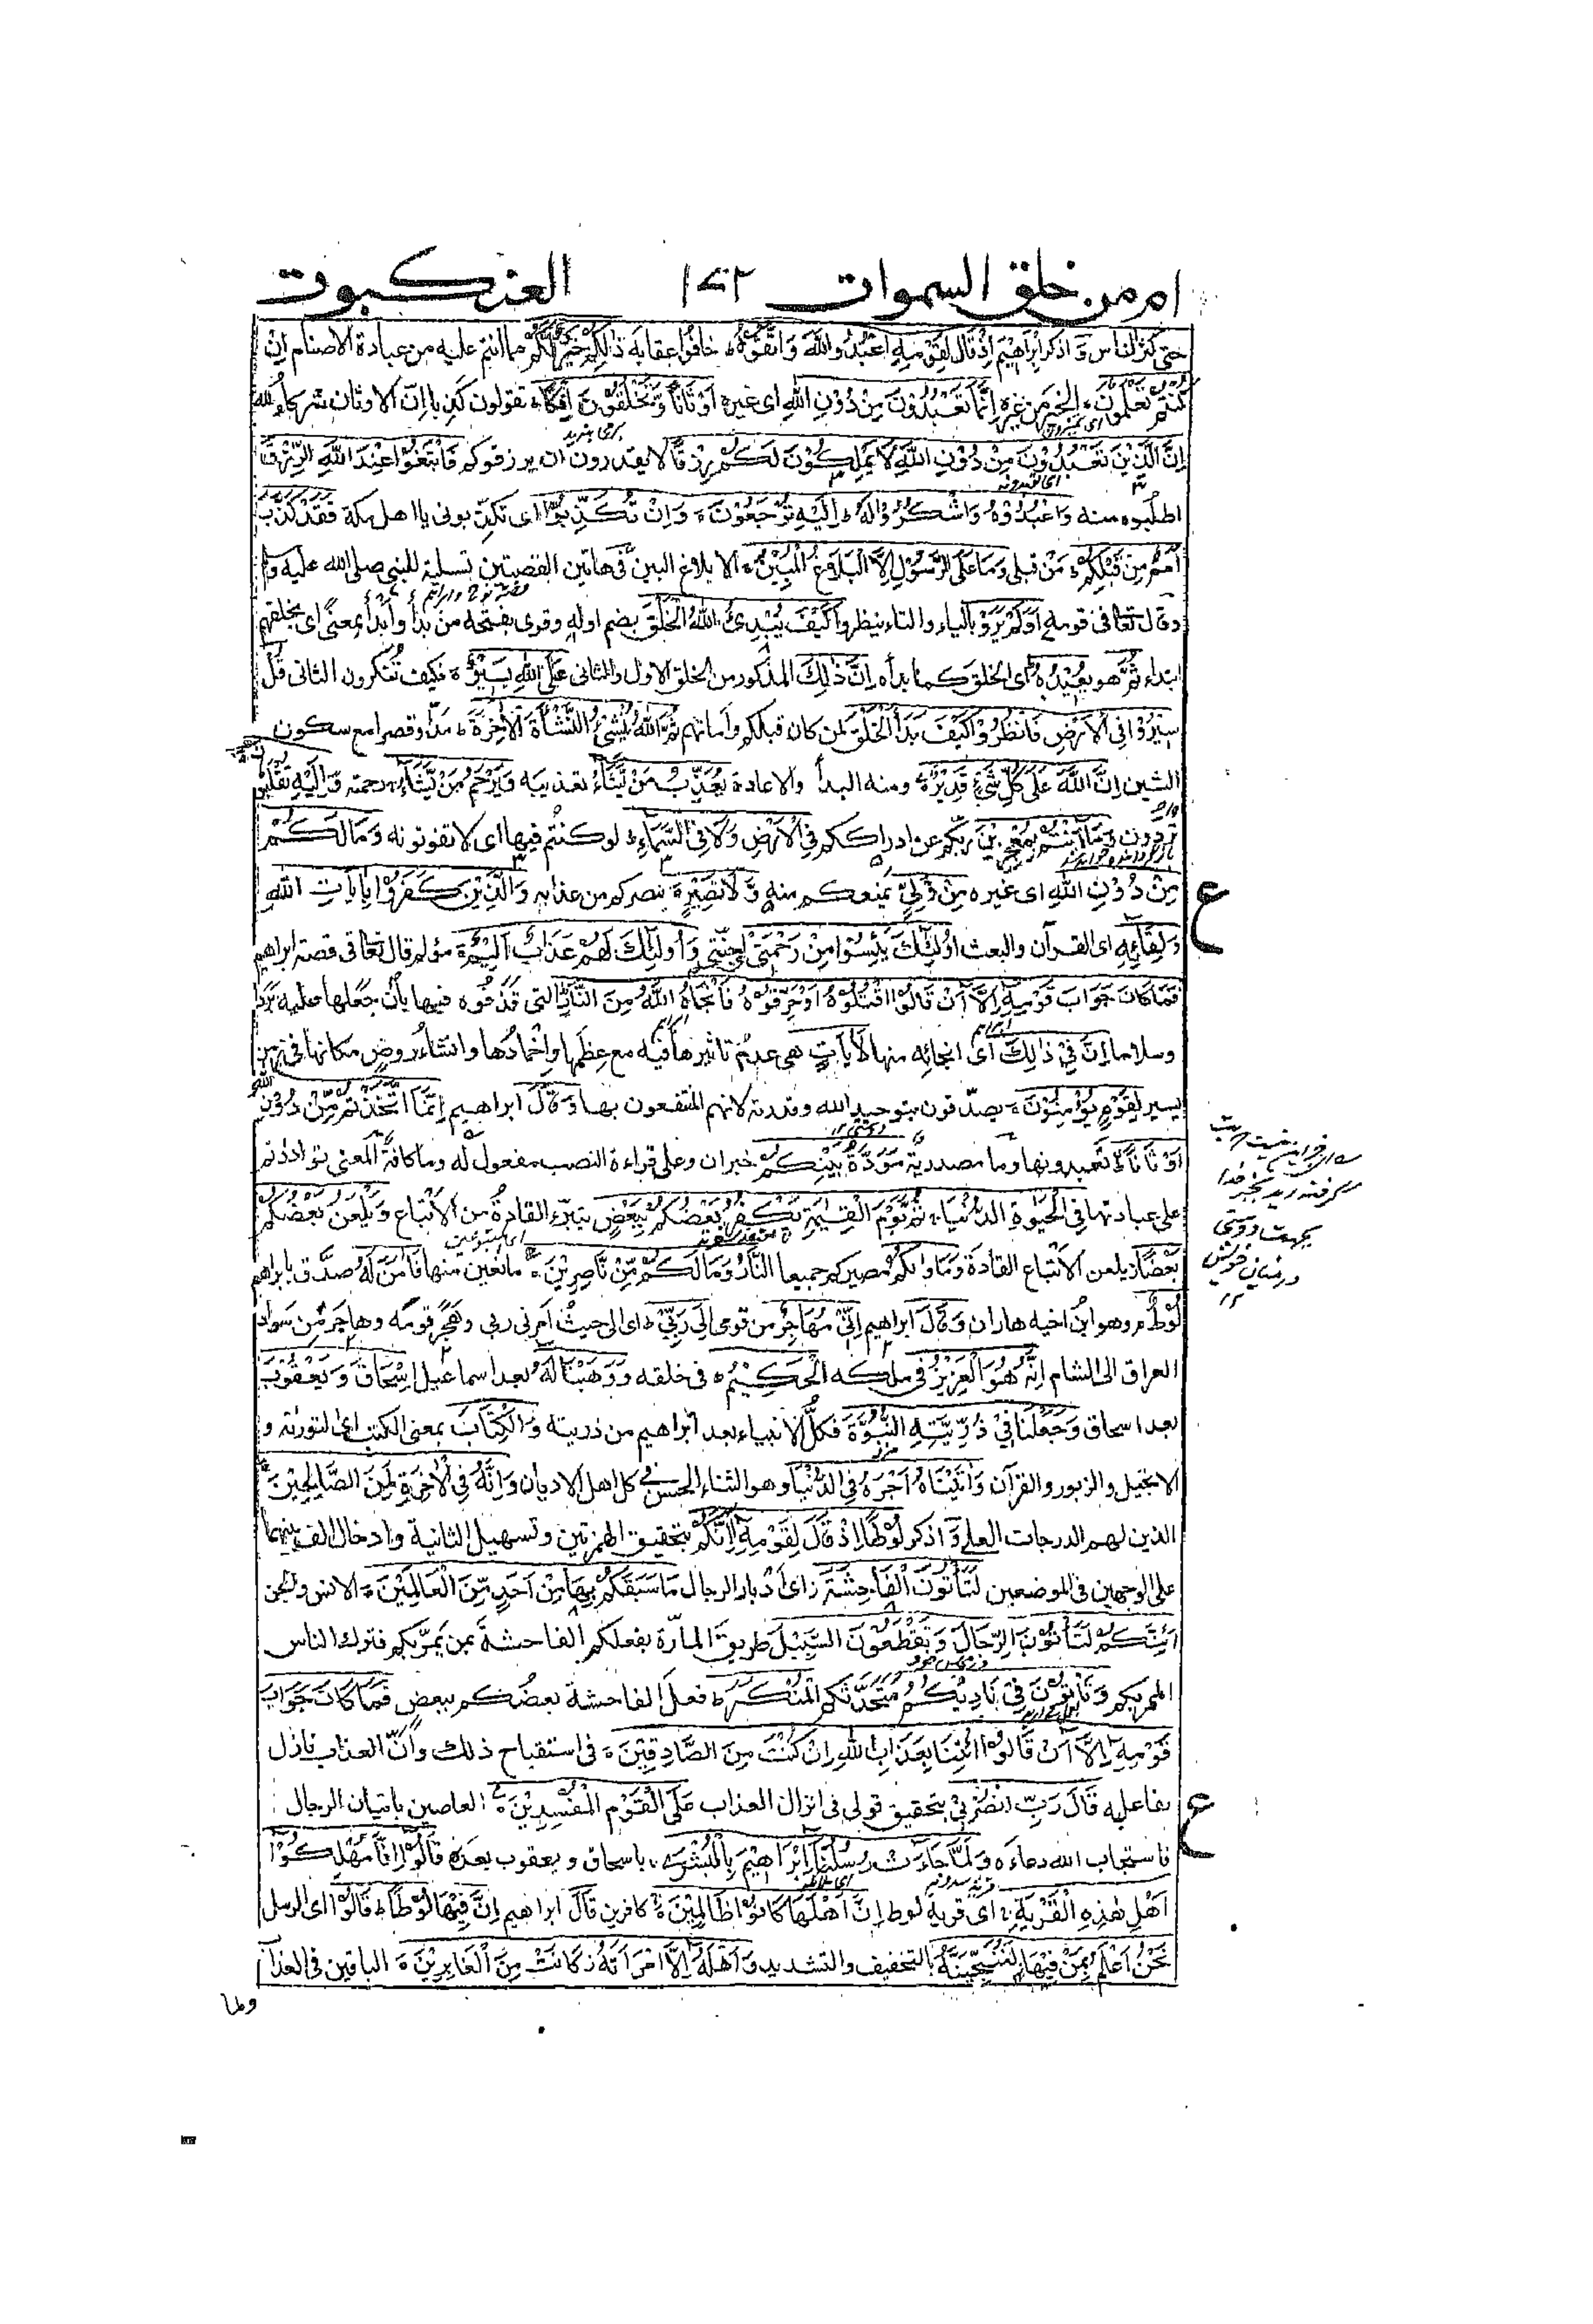 امر من خلق السموات ١٧٢ العنكبوت
حتى كثر الناس وَ اذكر اِبْرَاهِيْمَ اِذْ قَالَ لِقَوْمِهِ اعْبُدُوا اللّٰهَ وَ اتَّقُوْهُ ط خافوا عقابه ذٰلِكُمْ خَيْرٌ لَّكُمْ مما انتم عليه من عبادة الاصنام اِنْ
كُنْتُمْ تَعْلَمُوْنَ ه الخير من غيره اِنَّمَا تَعْبُدُوْنَ مِنْ دُوْنِ اللّٰهِ اى غيره اَوْثَانًا وَّ تَخْلُقُوْنَ اِفْكًا ط تقولون كذبا ان الاوثان شركاء لله
اِنَّ الَّذِيْنَ تَعْبُدُوْنَ مِنْ دُوْنِ اللّٰهِ لَا يَمْلِكُوْنَ لَكُمْ رِزْقًا لا يقدرون ان يرزقوكم فَابْتَغُوْا عِنْدَ اللّٰهِ الرِّزْقَ
اطلبوه منه وَ اعْبُدُوْهُ وَ اشْكُرُوْا لَهُ ط اِلَيْهِ تُرْجَعُوْنَ ه وَ اِنْ تُكَذِّبُوْا اى تكذبونى يا اهل مكة فَقَدْ كَذَّبَ
اُمَمٌ مِنْ قَبْلِكُمْ ط مَن قبلى وَ مَا عَلَى الرَّسُوْلِ اِلَّا الْبَلَاغُ الْمُبِيْنُ ه الابلاغ البين فى هاتين القصتين تسلية للنبى صلى الله عليه وسلم
وقال تعالى فى قومه اَوَلَمْ يَرَوْا بالياء والتاء ينظروا كَيْفَ يُبْدِئُ اللّٰهُ الْخَلْقَ بضم اوله وقرئ بفتحه من بدأ وأبدأ بمعنى اى يخلقهم
ابتداء ثُمَّ هو يُعِيْدُهُ ط اى الخلق كما بدأه اِنَّ ذٰلِكَ المذكور من الخلق الاول والثانى عَلَى اللّٰهِ يَسِيْرٌ ه فكيف تنكرون الثانى قُلْ
سِيْرُوْا فِى الْاَرْضِ فَانْظُرُوْا كَيْفَ بَدَأَ الْخَلْقَ لمن كان قبلكم وأماتهم ثُمَّ اللّٰهُ يُنْشِئُ النَّشْأَةَ الْاٰخِرَةَ ط مدّا وقصرا مع سكون
الشين اِنَّ اللّٰهَ عَلٰى كُلِّ شَىْءٍ قَدِيْرٌ ه ومنه البدأ والاعادة يُعَذِّبُ مَنْ يَّشَاءُ تعذيبه وَ يَرْحَمُ مَنْ يَّشَاءُ رحمته وَ اِلَيْهِ تُقْلَبُوْنَ
تردون وَ مَا اَنْتُمْ بِمُعْجِزِيْنَ ربكم عن ادراككم فِى الْاَرْضِ وَ لَا فِى السَّمَاءِ لو كنتم فيها اى لا تفوتونه وَ مَا لَكُمْ
مِنْ دُوْنِ اللّٰهِ اى غيره مِنْ وَّلِىٍّ يمنعكم منه وَّ لَا نَصِيْرٍ ه ينصركم من عذابه وَ الَّذِيْنَ كَفَرُوْا بِاٰيَاتِ اللّٰهِ
وَ لِقَائِهِ اى القرآن والبعث اُولٰئِكَ يَئِسُوْا مِنْ رَحْمَتِىْ اى جنتى وَ اُولٰئِكَ لَهُمْ عَذَابٌ اَلِيْمٌ ه مؤلم قال تعالى فى قصة ابراهيم
فَمَا كَانَ جَوَابَ قَوْمِهِ اِلَّا اَنْ قَالُوْا اقْتُلُوْهُ اَوْ حَرِّقُوْهُ فَاَنْجَاهُ اللّٰهُ مِنَ النَّارِ التى قذفوه فيها بأن جعلها عليه بردا
وسلاما اِنَّ فِىْ ذٰلِكَ اى انجائه منها لَاٰيَاتٍ هى عدم تاثيرها فيه مع عظمها واخمادها وانشاء روض مكانها فى زمن
يسير لِقَوْمٍ يُّؤْمِنُوْنَ ه يصدقون بتوحيد الله وقدرته لانهم المنتفعون بها وَ قَالَ ابراهيم اِنَّمَا اتَّخَذْتُمْ مِنْ دُوْنِ اللّٰهِ
اَوْثَانًا تعبدونها وما مصدرية مَوَدَّةُ بَيْنِكُمْ خبر ان وعلى قراءة النصب مفعول له وما كافة المعنى تواددتم
على عبادتها فِى الْحَيٰوةِ الدُّنْيَا ثُمَّ يَوْمَ الْقِيٰمَةِ يَكْفُرُ بَعْضُكُمْ بِبَعْضٍ يتبرأ القادة من الاتباع وَ يَلْعَنُ بَعْضُكُمْ
بَعْضًا يلعن الاتباع القادة وَ مَاْوٰىكُمُ مصيركم جميعا النَّارُ وَ مَا لَكُمْ مِّنْ نَّاصِرِيْنَ ه مانعين منها فَاٰمَنَ لَهُ صدق بابراهيم
لُوْطٌ وهو ابن اخيه هاران وَ قَالَ ابراهيم اِنِّىْ مُهَاجِرٌ من قومى اِلٰى رَبِّىْ ط اى الى حيث امرنى ربى وهجر قومه وهاجر من سواد
العراق الى الشام اِنَّهُ هُوَ الْعَزِيْزُ فى ملكه الْحَكِيْمُ ه فى خلقه وَ وَهَبْنَا لَهُ بعد اسماعيل اِسْحَاقَ وَ يَعْقُوْبَ
بعد اسحاق وَ جَعَلْنَا فِىْ ذُرِّيَّتِهِ النُّبُوَّةَ فكل الانبياء بعد ابراهيم من ذريته وَ الْكِتَابَ بمعنى الكتب اى التورٰىة و
الانجيل والزبور والقرآن وَ اٰتَيْنَاهُ اَجْرَهُ فِى الدُّنْيَا وهو الثناء الحسن فى كل اهل الاديان وَ اِنَّهُ فِى الْاٰخِرَةِ لَمِنَ الصَّالِحِيْنَ
الذين لهم الدرجات العلے وَ اذكر لُوْطًا اِذْ قَالَ لِقَوْمِهِ اِنَّكُمْ بتحقيق الهمزتين وتسهيل الثانية وادخال الف بينهما
على الوجهين فى الموضعين لَتَأْتُوْنَ الْفَاحِشَةَ ز اى ادبار الرجال مَا سَبَقَكُمْ بِهَا مِنْ اَحَدٍ مِّنَ الْعَالَمِيْنَ ه الانس والجن
اَئِنَّكُمْ لَتَأْتُوْنَ الرِّجَالَ وَ تَقْطَعُوْنَ السَّبِيْلَ طريق المارة بفعلكم الفاحشة بمن يمر بكم فترك الناس
الممر بكم وَ تَأْتُوْنَ فِىْ نَادِيْكُمُ متحدثكم الْمُنْكَرَ ط فعل الفاحشة بعضكم ببعض فَمَا كَانَ جَوَابَ
قَوْمِهِ اِلَّا اَنْ قَالُوا ائْتِنَا بِعَذَابِ اللّٰهِ اِنْ كُنْتَ مِنَ الصَّادِقِيْنَ ه فى استقباح ذلك وأن العذاب نازل
بفاعليه قَالَ رَبِّ انْصُرْنِىْ بتحقيق قولى فى انزال العذاب عَلَى الْقَوْمِ الْمُفْسِدِيْنَ ه العاصين باتيان الرجال
فاستجاب الله دعاءه وَ لَمَّا جَاءَتْ رُسُلُنَا اِبْرَاهِيْمَ بِالْبُشْرٰى باسحاق ويعقوب بعده قَالُوْا اِنَّا مُهْلِكُوْا
اَهْلِ هٰذِهِ الْقَرْيَةِ ج اى قرية لوط اِنَّ اَهْلَهَا كَانُوْا ظَالِمِيْنَ ه كافرين قَالَ ابراهيم اِنَّ فِيْهَا لُوْطًا ط قَالُوْا اى الرسل
نَحْنُ اَعْلَمُ بِمَنْ فِيْهَا لَنُنَجِّيَنَّهُ بالتخفيف والتشديد وَ اَهْلَهُ اِلَّا امْرَاَتَهُ ز كَانَتْ مِنَ الْغَابِرِيْنَ ه الباقين فى العذاب
ولما
ع
ع